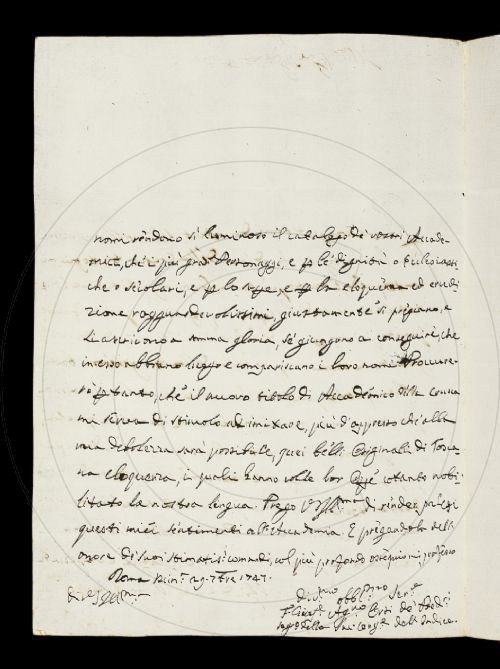 nomi rendono sì luminoso il catalogo de' vostri Accade-
mici, che i più gran Personaggi, e p le dignità o Ecclesiasti-
che o secolari, e p lo, e p la eloquenza ed erudi-
zione ragguardevolissimi, giustamente si pregiano, e
si ascrivono a somma gloria, se giungono a conseguire, che
in esso abbiano luogo e compariscano i loro nomi. Procure-
rò p tanto, che il nuovo titolo di Accadémico della Crusca
mi serva di stimolo ad imitare, più d'appresso che alla
mia debolezza sarà possibile, quei belli Originali di Tosca-
na eloquenza, i quali hanno colle lor cotanto nobi-
litato la nostra lingua. Prego di render palesi
questi miei sentimenti all'Accademia. E pregandola dell'
onore di suoi stimatissi comandi, col più profondo ossequio mi professo
Roma 29. 7bre 1747.
Agno
della de